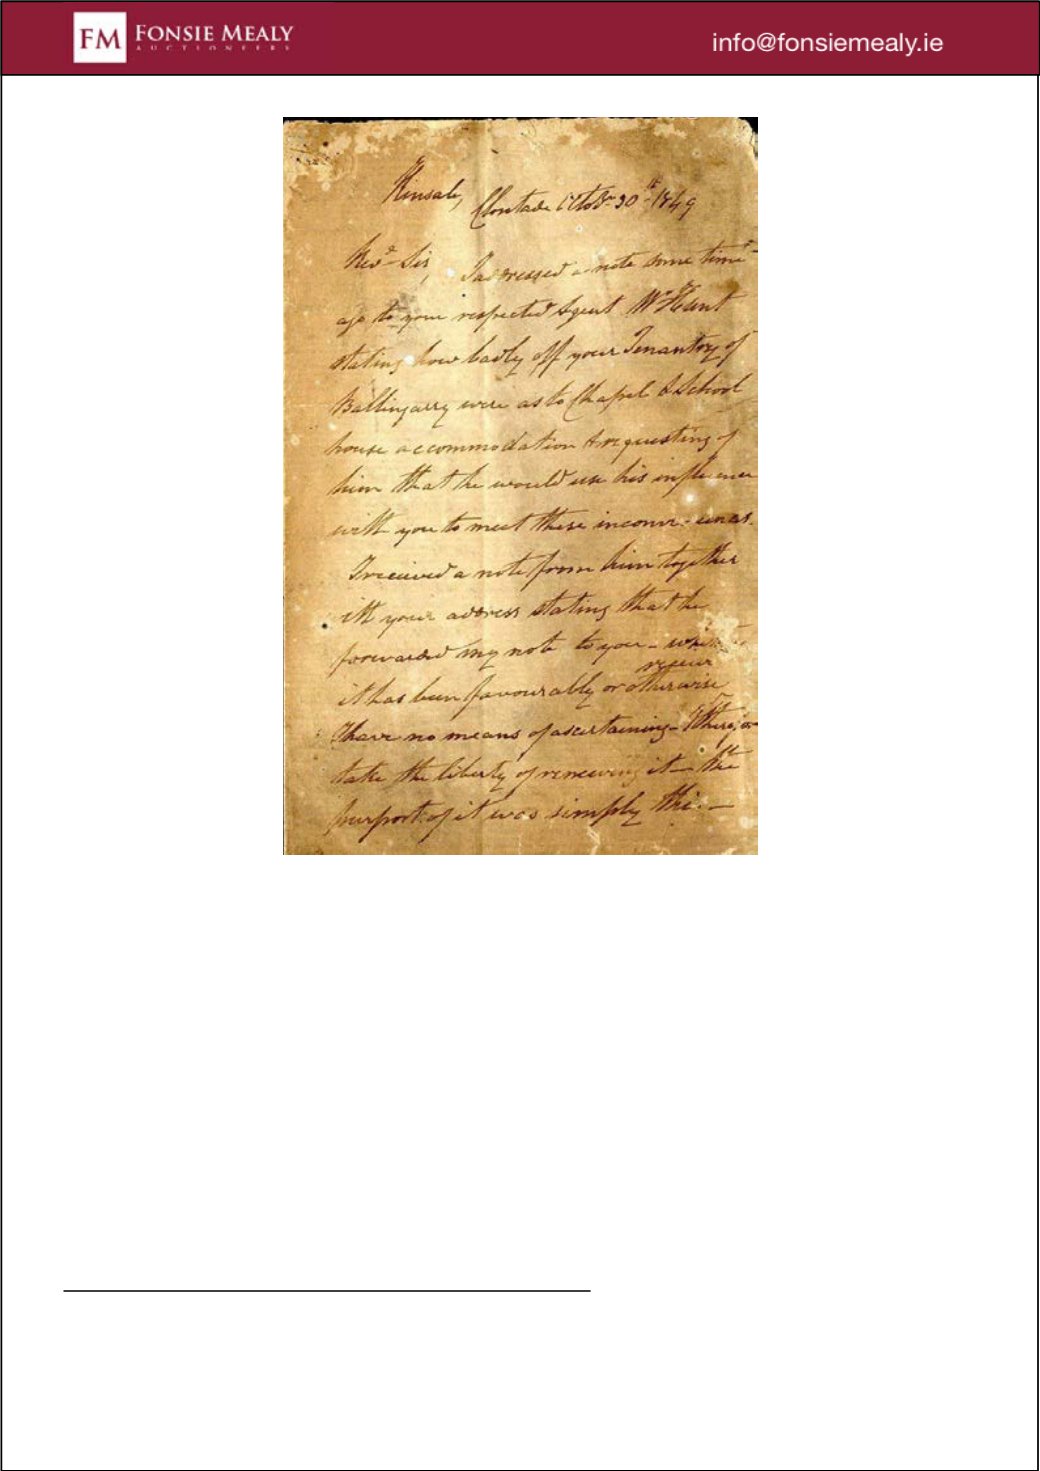 FM FONSIE MEALY
AUCTIONEERS
info@fonsiemealy.ie
Kinsale, Octobr 30th 1849
Revd Sir, I addressed a note some time
ago to your respected Agent Mr Hunt
stating how badly off your Tenantry of
Ballingarry were as to Chapel & School
house accommodation & requesting of
him that he would use his influence
with you to meet these
I received a note from him together
ith your address stating that he
forwarded my note to you -
receiv
it has been favourably or otherwise
I have no means of ascertaining - I therefore
take the liberty of renewing it - the
purport of it was simply this. -